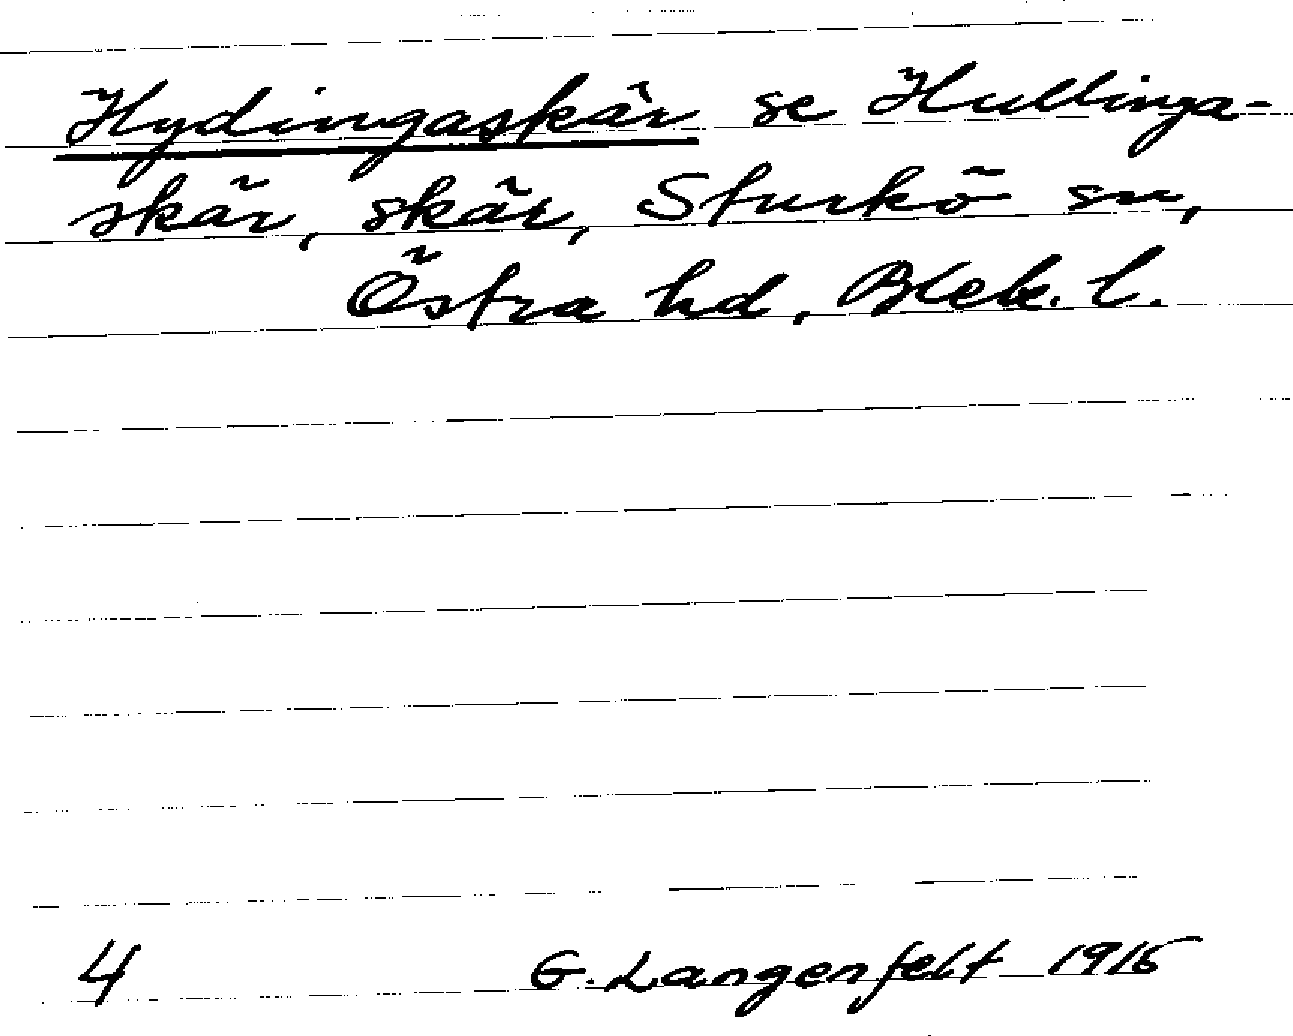 Hydingaskär se Hullinga-
skär, skär, Sturkö sn,
Östra hd, Blek. l.
4 G. Langenfelt 1915